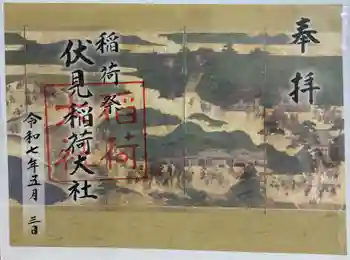 奉拝
稲荷祭
伏見稲荷大社
令和七年五月三日
稲荷